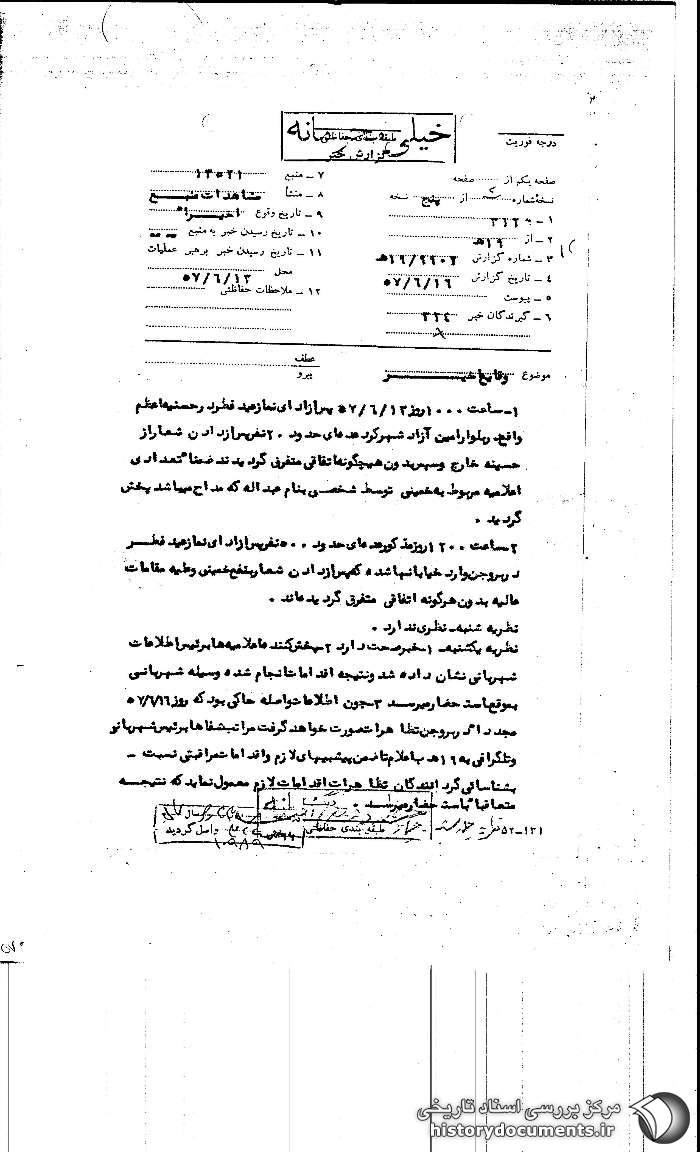 خیلی محرمانه
طبقه بندی حفاظتی
گزارش خبر
درجه فوریت
صفحه یکم از صفحه
نسخه شماره از پنج نسخه
۱ - به ۳۱۲
۲ - از ۱۶ه‍
۳ - شماره گزارش
۴ - تاریخ گزارش ۵۷/۶/۱۶
۵ - پیوست
۶ - گیرندگان خبر ۳۲۴
۷ - منبع ۱۳۵۲۱
۸ - منشأ مشاهدات منبع
۹ - تاریخ وقوع اخیراً
۱۰ - تاریخ رسیدن خبر به منبع
۱۱ - تاریخ رسیدن خبر برهبر عملیات
محل ۵۷/۶/۱۳
۱۲ - ملاحظات حفاظتی
موضوع وقایع شهر
عطف
پیرو
۱- ساعت ۱۰۰۰ روز ۵۷/۶/۱۳ پس از ادای نماز عید فطر در حسینیه اعظم
واقع در بلوار امین آزاد شهرکرد عده ای حدود ۲۰ نفر پس از دادن شعار از
حسینه خارج و سپس بدون هیچگونه اتفاقی متفرق گردیدند ضمنا تعدادی
اعلامیه مربوط به خمینی توسط شخصی بنام عبداله که مداح میباشد پخش
گردید .
۲- ساعت ۱۲۰۰ روز مذکور عده ای حدود ۵۰۰ نفر پس از ادای نماز عید فطر
در بروجن وارد خیابانها شده که پس از دادن شعار بنفع خمینی و علیه مقامات
عالیه بدون هرگونه اتفاقی متفرق گردیده اند .
نظریه شنبه - نظری ندارد .
نظریه یکشنبه - ۱- خبر صحت دارد ۲- پخش کننده اعلامیه ها برئیس اطلاعات
شهربانی نشان داده شد و نتیجه اقدامات انجام شده وسیله شهربانی
بموقع باستحضار میرسد ۳- چون اطلاعات واصله حاکی بود که روز ۵۷/۶/۱۶
مجددا در بروجن تظاهرات صورت خواهد گرفت مراتب شفاها برئیس شهربانی و
و تلگرافی به ۱۶ه‍ ب اعلام تا ضمن پیشبینیهای لازم و اقدامات مراقبتی نسبت -
بشناسائی گردانندگان تظاهرات اقدامات لازم معمول نماید که نتیجه
متعاقبا باستحضار میرسد .
طبقه بندی حفاظتی
واصل گردید
۱۳۱-۵۲
مرکز بررسی اسناد تاریخی
historydocuments.ir